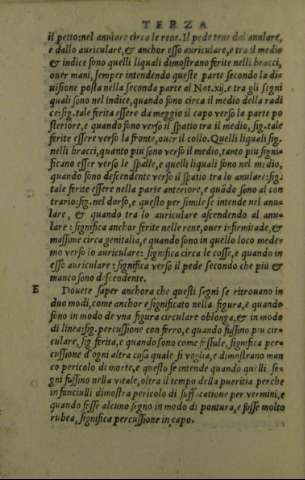 TERZA
il petto: nel anulare circa le rene. Il pede tene dal anulare,
e dallo auriculare, & anchor esso auriculare, e tra il medio
& indice sono quelli liquali dimostrano ferite nelli bracci,
ouer mani, semper intendendo queste parte secondo la di-
uisione posta nella seconda parte al Not. xij. e tra gli segni
quali sono nel indice, quando sono circa il medio della radi
ce: sig. tale ferita essere da meggio il capo verso la parte po
steriore, e quando sono verso il spatio tra il medio, sig. tale
ferite essere verso la fronte, ouer il collo. Quelli liquali sig.
nelli bracci, quanto piu sono verso il medio, tanto piu signi-
ficano esser verso le spalle, e quelli liquali sono nel medio,
quando sono descendente verso il spatio tra lo anulare: sig.
tale ferite essere nella parte anteriore, e quãdo sono al con
trario: sig. nel dorso, e questo per simile se intende nel anu-
lare, & quando tra lo auriculare ascendendo al anu-
lare: significa anchor ferite nelle rene, ouer infirmitade, &
massime circa genitalia, e quando sono in quello loco mede
mo verso lo auriculare: significa circa le cosse, e quando in
esso auriculare: significa verso il pede secondo che piu &
manco sono descendente.
E Douete saper anchora che questi segni se ritrouano in
duo modi, come anchor e significato nella figura, e quando
sono in modo de vna figura circulare oblonga, & in modo
di linea: sig. percussione con ferro, e quando fussino piu cir-
culare, sig. ferita, e quando sono come fistule, significa per-
cussione d'ogni altra cosa quale si voglia, e dimostrano man
co pericolo di morte, e questo se intende quando quelli se-
gni fussino nella vitale, oltra il tempo della pueritia perche
in fanciulli dimostra pericolo di suffocatione per vermini, e
quando fosse alcuno segno in modo di pontura, e fosse molto
rubea, significa percussione in capo.